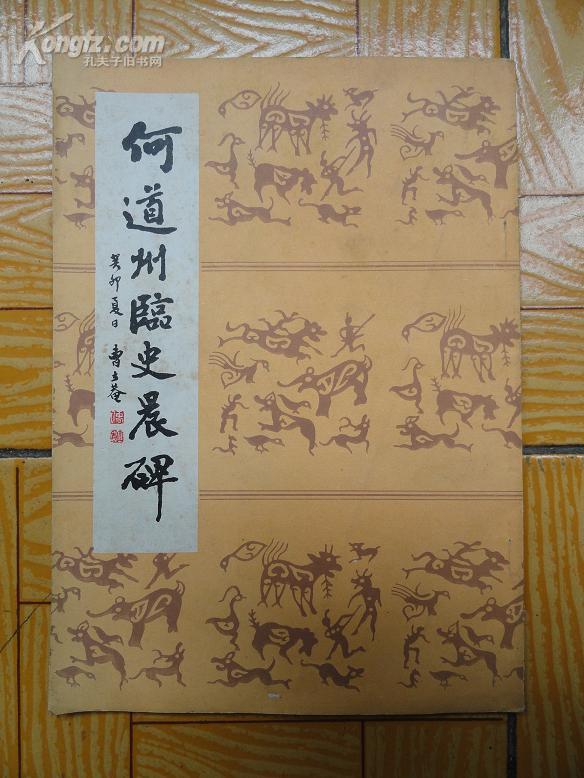 Kongfz.com
孔夫子旧书网
何道州臨史晨碑
癸卯夏日 曹立菴